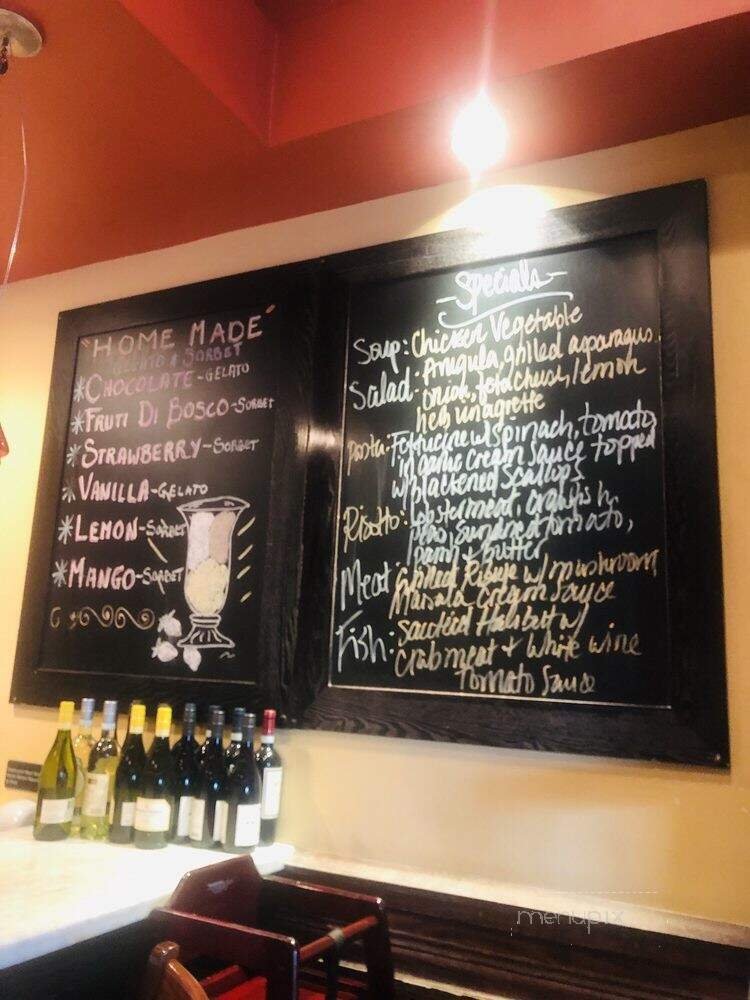 "HOME MADE"
GELATO & SORBET
*CHOCOLATE-GELATO
*FRUTI DI BOSCO-SORBET
*STRAWBERRY-SORBET
*VANILLA-GELATO
*LEMON-SORBET
*MANGO-SORBET
-Specials-
Soup: Chicken Vegetable
Salad: Arugula, grilled asparagus,
onion, feta cheese, lemon
herb vinagrette
Pasta: Fettucine w/ spinach, tomato,
in garlic cream sauce topped
w/ blackened Scallops
Risotto: lobster meat, crayfish,
peas, sundried tomato,
parm + butter
Meat: Grilled Ribeye w/ mushroom
Marsala Cream Sauce
Fish: Sauteed Halibut w/
Crabmeat + white wine
Tomato Sauce
menupix